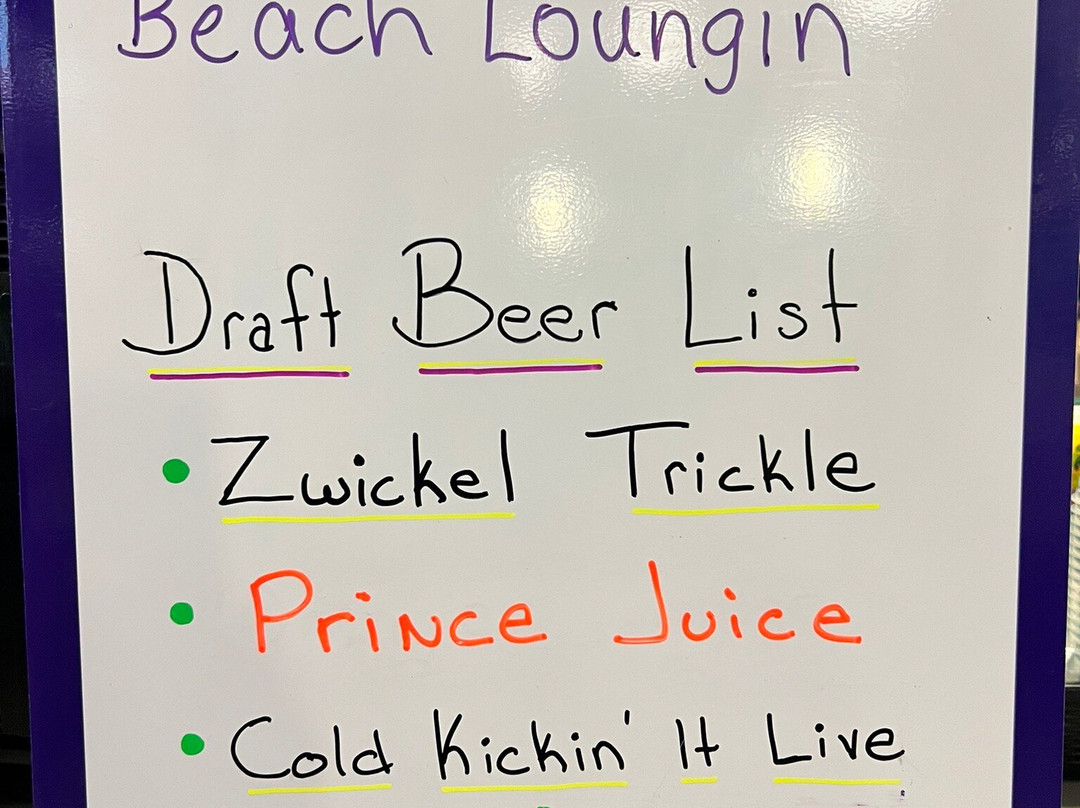 Beach Loungin
Draft Beer List
• Zwickel Trickle
• Prince Juice
• Cold Kickin' It Live